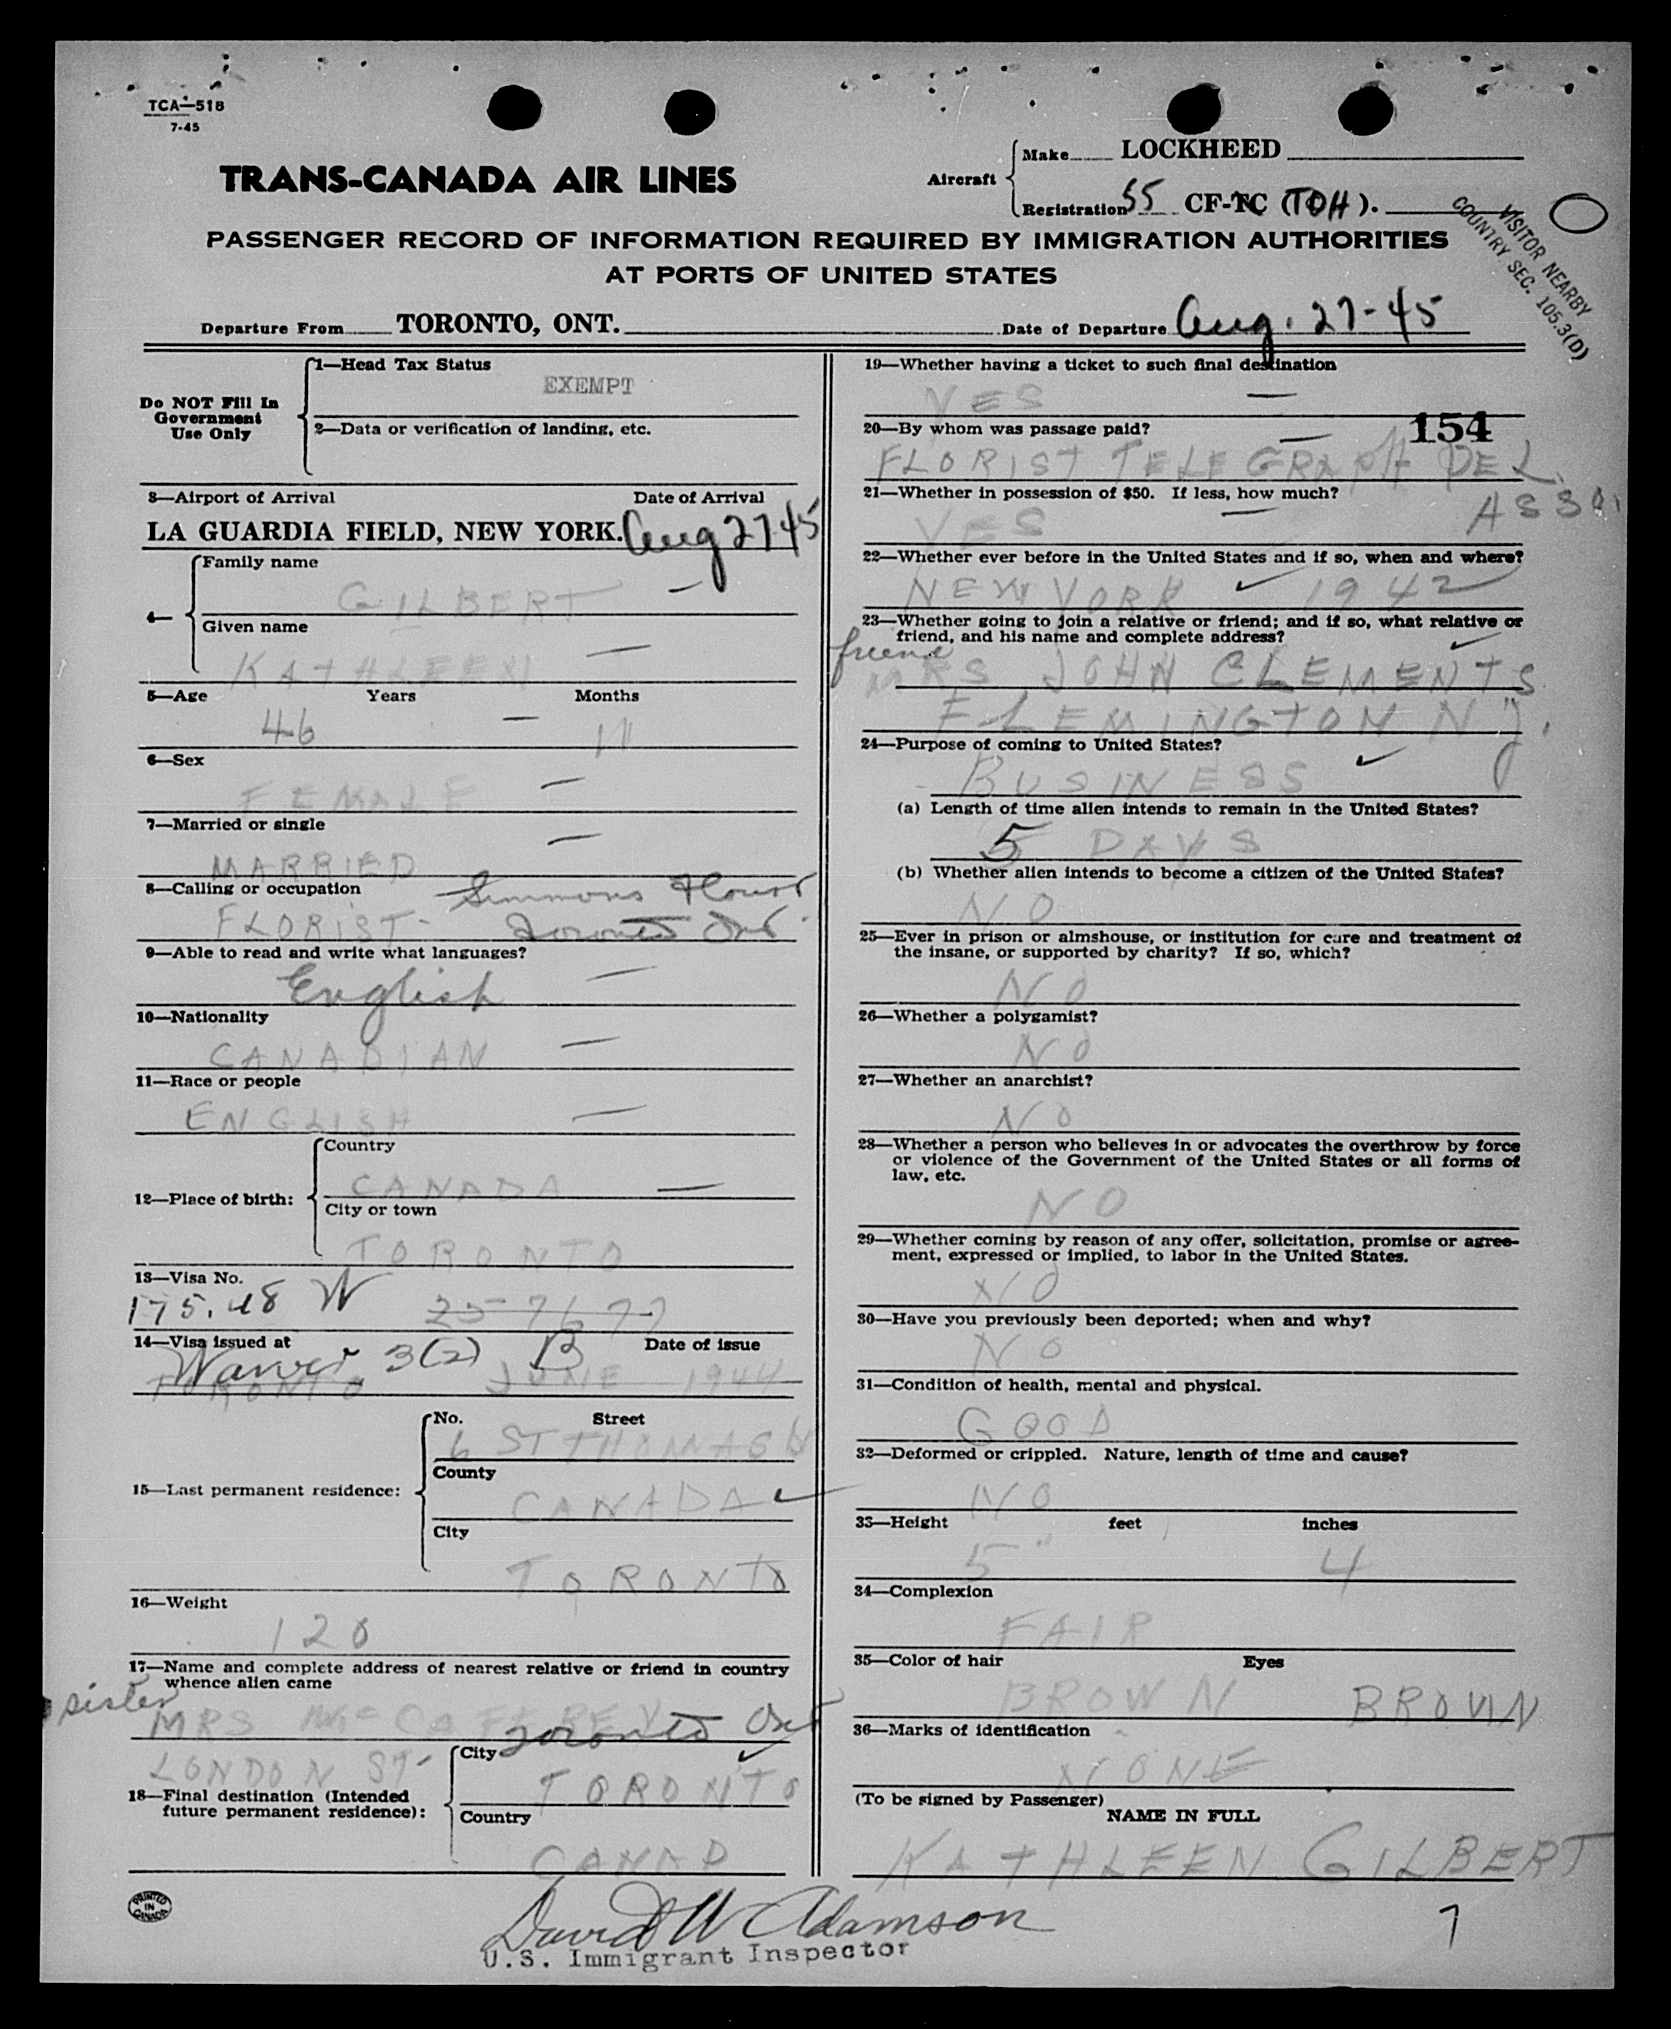 TCA-518
7-45
TRANS-CANADA AIR LINES
Aircraft
Make LOCKHEED
Registration 55 CF-TC (TDH).
VISITOR NEARBY
COUNTRY SEC. 105.3(D)
PASSENGER RECORD OF INFORMATION REQUIRED BY IMMIGRATION AUTHORITIES
AT PORTS OF UNITED STATES
Departure From TORONTO, ONT. Date of Departure Aug. 27-45
Do NOT Fill In
Government
Use Only
1—Head Tax Status
EXEMPT
2—Data or verification of landing, etc.
3—Airport of Arrival Date of Arrival
LA GUARDIA FIELD, NEW YORK. Aug 27-45
4—
Family name
GILBERT —
Given name
KATHLEEN —
5—Age Years Months
46 — 11
6—Sex
FEMALE —
7—Married or single
MARRIED —
8—Calling or occupation Simmons Flower
FLORIST - Toronto Ont.
9—Able to read and write what languages?
English —
10—Nationality
CANADIAN —
11—Race or people
ENGLISH —
12—Place of birth:
Country
CANADA —
City or town
TORONTO
13—Visa No.
175.48 W 257677
14—Visa issued at Date of issue
Waiver 3(2) B
TORONTO JUNE 1944
15—Last permanent residence:
No. Street
6 ST THOMAS
County
CANADA ✓
City
TORONTO
16—Weight
120
17—Name and complete address of nearest relative or friend in country
whence alien came
sister
MRS McCAFFREY Toronto Ont
LONDON ST-
18—Final destination (Intended
future permanent residence):
City
TORONTO
Country
CANAD
19—Whether having a ticket to such final destination
YES —
20—By whom was passage paid? — 154
FLORIST TELEGRAPH DEL.
21—Whether in possession of $50. If less, how much? ASSO.
YES —
22—Whether ever before in the United States and if so, when and where?
NEW YORK ✓ 1942
23—Whether going to join a relative or friend; and if so, what relative or
friend, and his name and complete address?
friend
MRS JOHN CLEMENTS
FLEMINGTON N J.
24—Purpose of coming to United States?
BUSINESS ✓
(a) Length of time alien intends to remain in the United States?
5 DAYS
(b) Whether alien intends to become a citizen of the United States?
NO
25—Ever in prison or almshouse, or institution for care and treatment of
the insane, or supported by charity? If so, which?
NO
26—Whether a polygamist?
NO
27—Whether an anarchist?
NO
28—Whether a person who believes in or advocates the overthrow by force
or violence of the Government of the United States or all forms of
law, etc.
NO
29—Whether coming by reason of any offer, solicitation, promise or agree-
ment, expressed or implied, to labor in the United States.
NO
30—Have you previously been deported; when and why?
NO
31—Condition of health, mental and physical.
GOOD
32—Deformed or crippled. Nature, length of time and cause?
NO
33—Height feet inches
5 4
34—Complexion
FAIR
35—Color of hair Eyes
BROWN BROWN
36—Marks of identification
NONE
(To be signed by Passenger)
NAME IN FULL
KATHLEEN GILBERT
PRINTED
IN
CANADA
David W Adamson
U.S. Immigrant Inspector
7